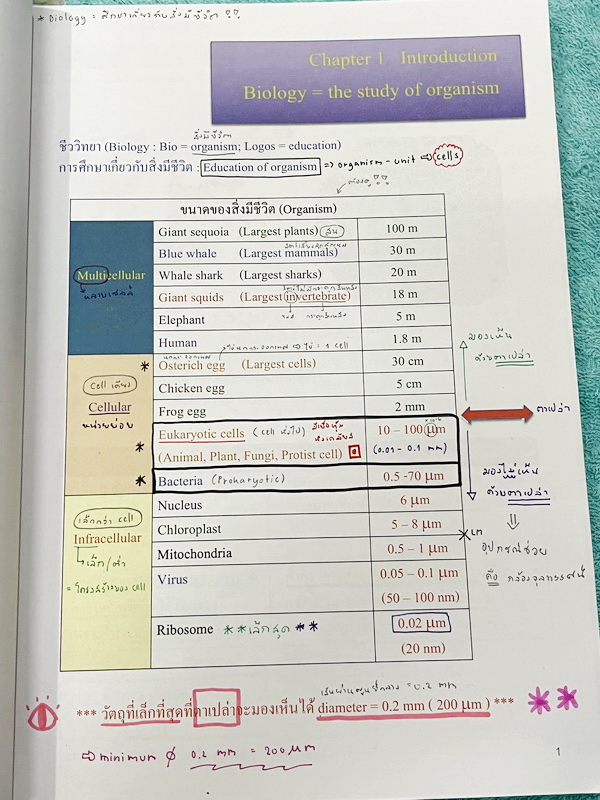 * Biology = ศึกษาเกี่ยวกับสิ่งมีชีวิต !!
Chapter 1 Introduction
Biology = the study of organism
สิ่งมีชีวิต
ชีววิทยา (Biology : Bio = organism; Logos = education)
การศึกษาเกี่ยวกับสิ่งมีชีวิต : Education of organism => organism - unit => cells
ขนาดของสิ่งมีชีวิต (Organism)
Multicellular
หลายเซลล์
Giant sequoia (Largest plants) สน 100 m
Blue whale (Largest mammals) 30 m
Whale shark (Largest sharks) 20 m
Giant squids (Largest invertebrate) 18 m
ไม่ กระดูกสันหลัง
Elephant 5 m
Human 1.8 m
cell เดียว
Cellular
หน่วยย่อย
นกกระจอกเทศ
* Osterich egg (Largest cells) 30 cm
Chicken egg 5 cm
Frog egg 2 mm
Eukaryotic cells (cell ทั่วไป) มีเยื่อหุ้ม 10 – 100 μm
* (Animal, Plant, Fungi, Protist cell) (0.01 - 0.1 mm)
* Bacteria (Prokaryotic) 0.5 -70 μm
เล็กกว่า cell
Infracellular
เล็ก/ต่ำ
= โครงสร้างของ cell
Nucleus 6 μm
Chloroplast 5 – 8 μm
Mitochondria 0.5 – 1 μm
Virus 0.05 – 0.1 μm
(50 – 100 nm)
Ribosome **เล็กสุด** 0.02 μm
(20 nm)
มองเห็น
ด้วยตาเปล่า
ตาเปล่า
มองไม่เห็น
ด้วยตาเปล่า
LM
อุปกรณ์ช่วย
คือ กล้องจุลทรรศน์
เส้นผ่านศูนย์กลาง = 0.2 mm
*** วัตถุที่เล็กที่สุดที่ตาเปล่าจะมองเห็นได้ diameter = 0.2 mm ( 200 μm ) ***
⇒ minimum ϕ 0.2 mm = 200 μm
1